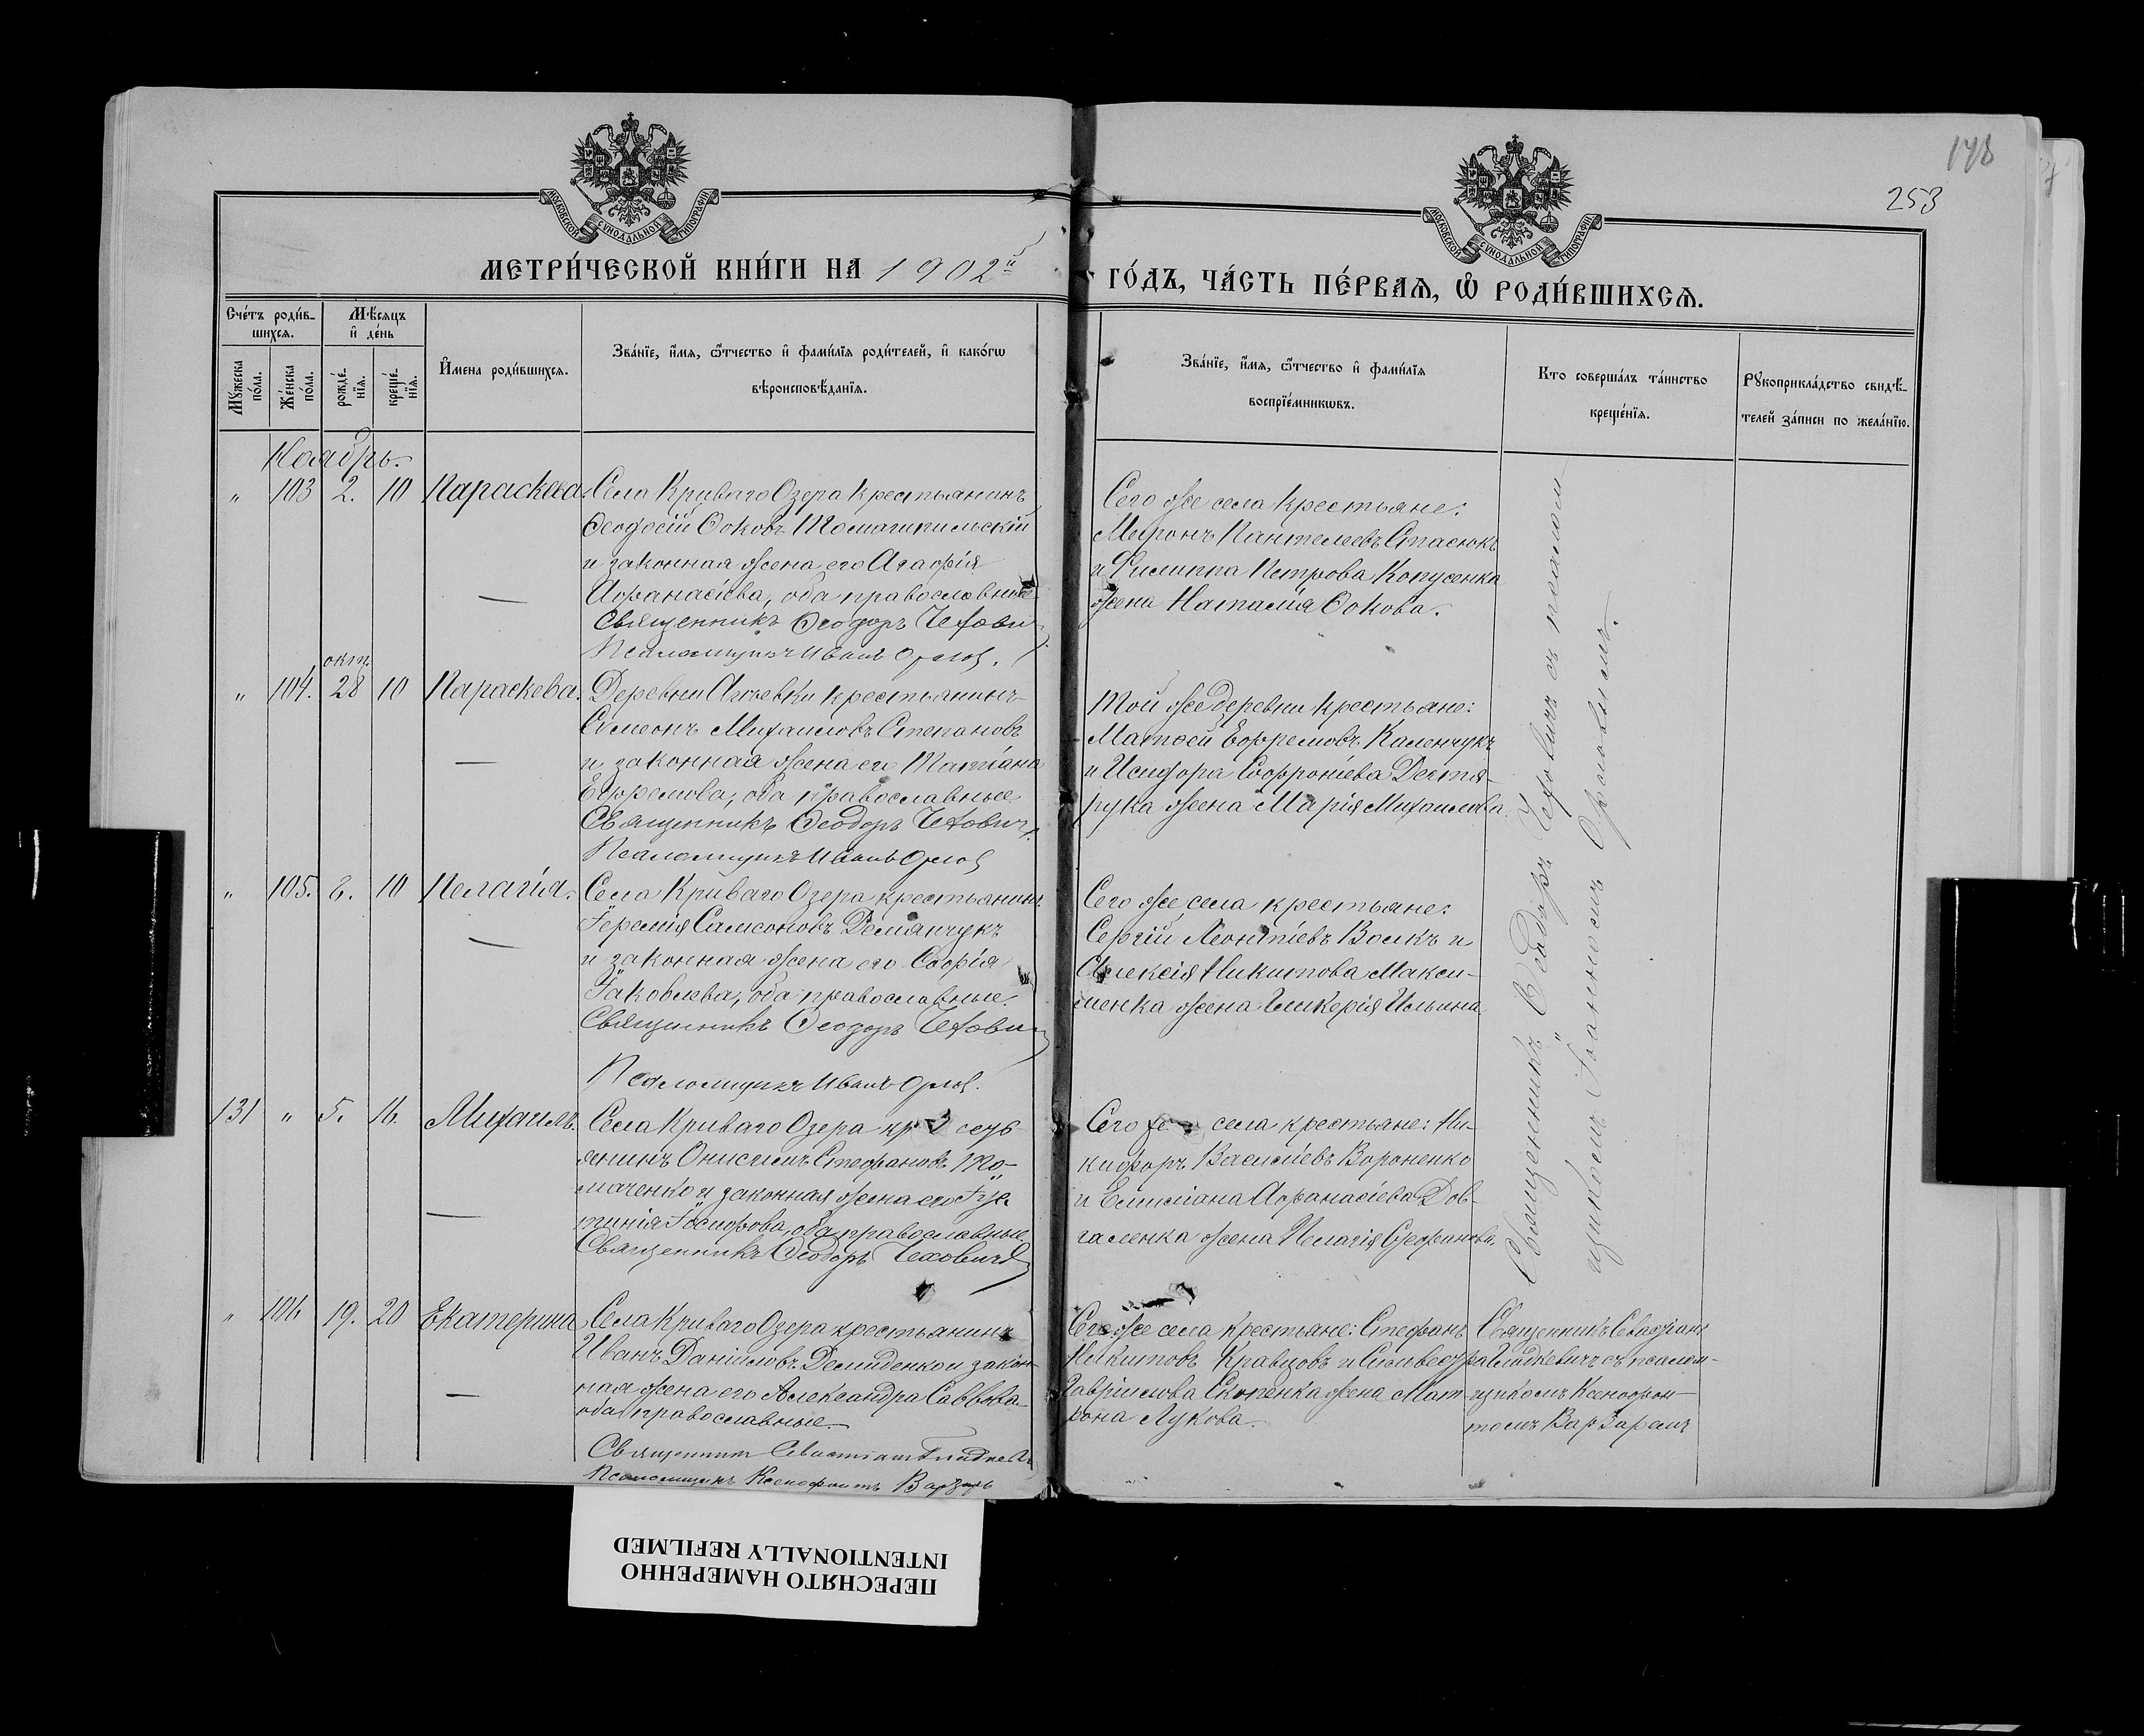 178
253
МОСКОВСКОЙ СѴНОДАЛЬНОЙ ТИПОГРАФІИ
МОСКОВСКОЙ СѴНОДАЛЬНОЙ ТИПОГРАФІИ
МЕТРИ́ЧЕСКОЙ КНИ́ГИ НА 1902й
ГО́ДЪ, ЧА́СТЬ ПЕ́РВАѦ, Ѡ҆ РОДИ́ВШИХСѦ.
Сче́тъ роди́в-
шихсѧ.
Мѣ́сѧцъ
и҆ де́нь
Мꙋ́жеска
по́ла.
Же́нска
по́ла.
рожде́-
нїѧ.
креще́-
нїѧ.
И҆мена роди́вшихсѧ.
Зва́нїе, и҆́мѧ, ѻ҆́тчество и҆ фами́лїѧ роди́телей, и҆ како́гѡ
вѣроисповѣ́данїѧ.
Зва́нїе, и҆́мѧ, ѻ҆́тчество и҆ фами́лїѧ
воспрїе́мникѡвъ.
Кто соверша́лъ та́инство
креще́нїѧ.
Рꙋкоприкла́дство свидѣ́-
телей за́писи по жела́нїю.
Ноябрь.
" 103 2. 10 Параскева
Села Криваго Озера крестьянинъ
Ѳеодосій Ѳоковъ
и законная жена его Агафія
Аѳанасіева, оба православные
Священникъ Ѳеодоръ Чехович
Псаломщикъ Иванъ Орлов.
Сего же села крестьяне:
Миронъ Пантелеевъ Стасюкъ
и Филиппа Петрова Копусенка
жена Наталія Ѳокова.
окт.
" 104. 28 10 Параскева.
Деревни крестьянинъ
Симеонъ Михаиловъ Степановъ
и законная жена его Татіана
Ефремова, оба православные
Священникъ Ѳеодоръ Чехович
Псаломщикъ Иванъ Орлов
Той же деревни крестьяне:
Матѳей Ефремовъ Каленчукъ
и Исидора Софроніева Дегтя-
рука жена Марія Михаилова.
" 105. 8. 10 Пелагія.
Села Криваго Озера крестьянинъ
Іеремія Самсоновъ Демянчукъ
и законная жена его Софія
Іаковлева, оба православные.
Священникъ Ѳеодоръ Чехович
Псаломщикъ Иванъ Орлов.
Сего же села крестьяне:
Сергій Леонтіевъ Волкъ и
Алексія Никитова Макси-
менка жена Гликерія Ильина
131 " 5. 16. Михаилъ.
Села Криваго Озера кресть-
янинъ Онисимъ Стефановъ То-
маченко и законная жена его Іус-
тинія Іосифова, оба православные
Священникъ Ѳеодоръ Чехович
Сего же села крестьяне: Ни-
кифоръ Василіевъ Вороненко
и Емиліана Аѳанасіева Дов-
галенка жена Пелагія Стефанова.
Священникъ Ѳеодоръ Чеховичъ съ псалом-
щикомъ Іоанномъ Орловымъ.
" 106 19. 20 Екатерина
Села Криваго Озера крестьянинъ
Иванъ Даніиловъ Демиденко и закон-
ная жена его Александра Саввова
оба православные.
Священник Севастіан
Псаломщикъ Ксенофонтъ Варзарь
Сего же села крестьяне: Стефанъ
Никитовъ Кравцовъ и Сильвестра
Гавріилова Скопенка жена Мат-
рона Лукова.
Священникъ Севастіанъ
Гладкевичъ съ псалом-
щикомъ Ксенофон-
томъ Варзаремъ
ПЕРЕСНЯТО НАМЕРЕННО
INTENTIONALLY REFILMED